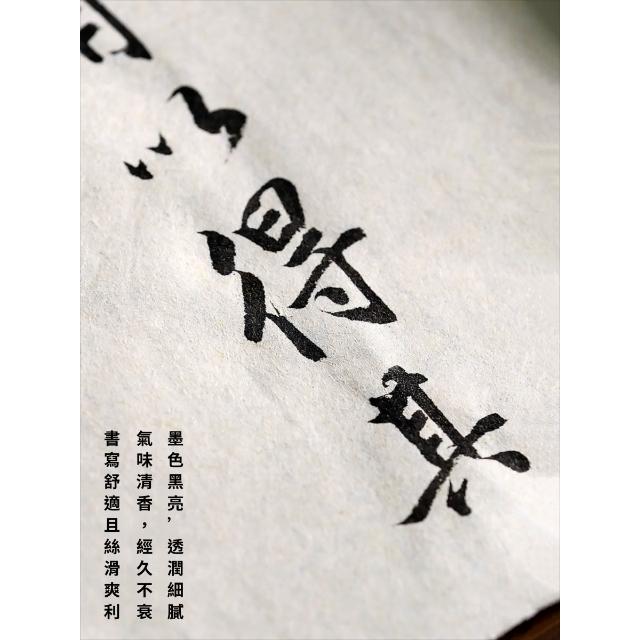 得其
墨色黑亮，透潤細膩
氣味清香，經久不衰
書寫舒適且絲滑爽利